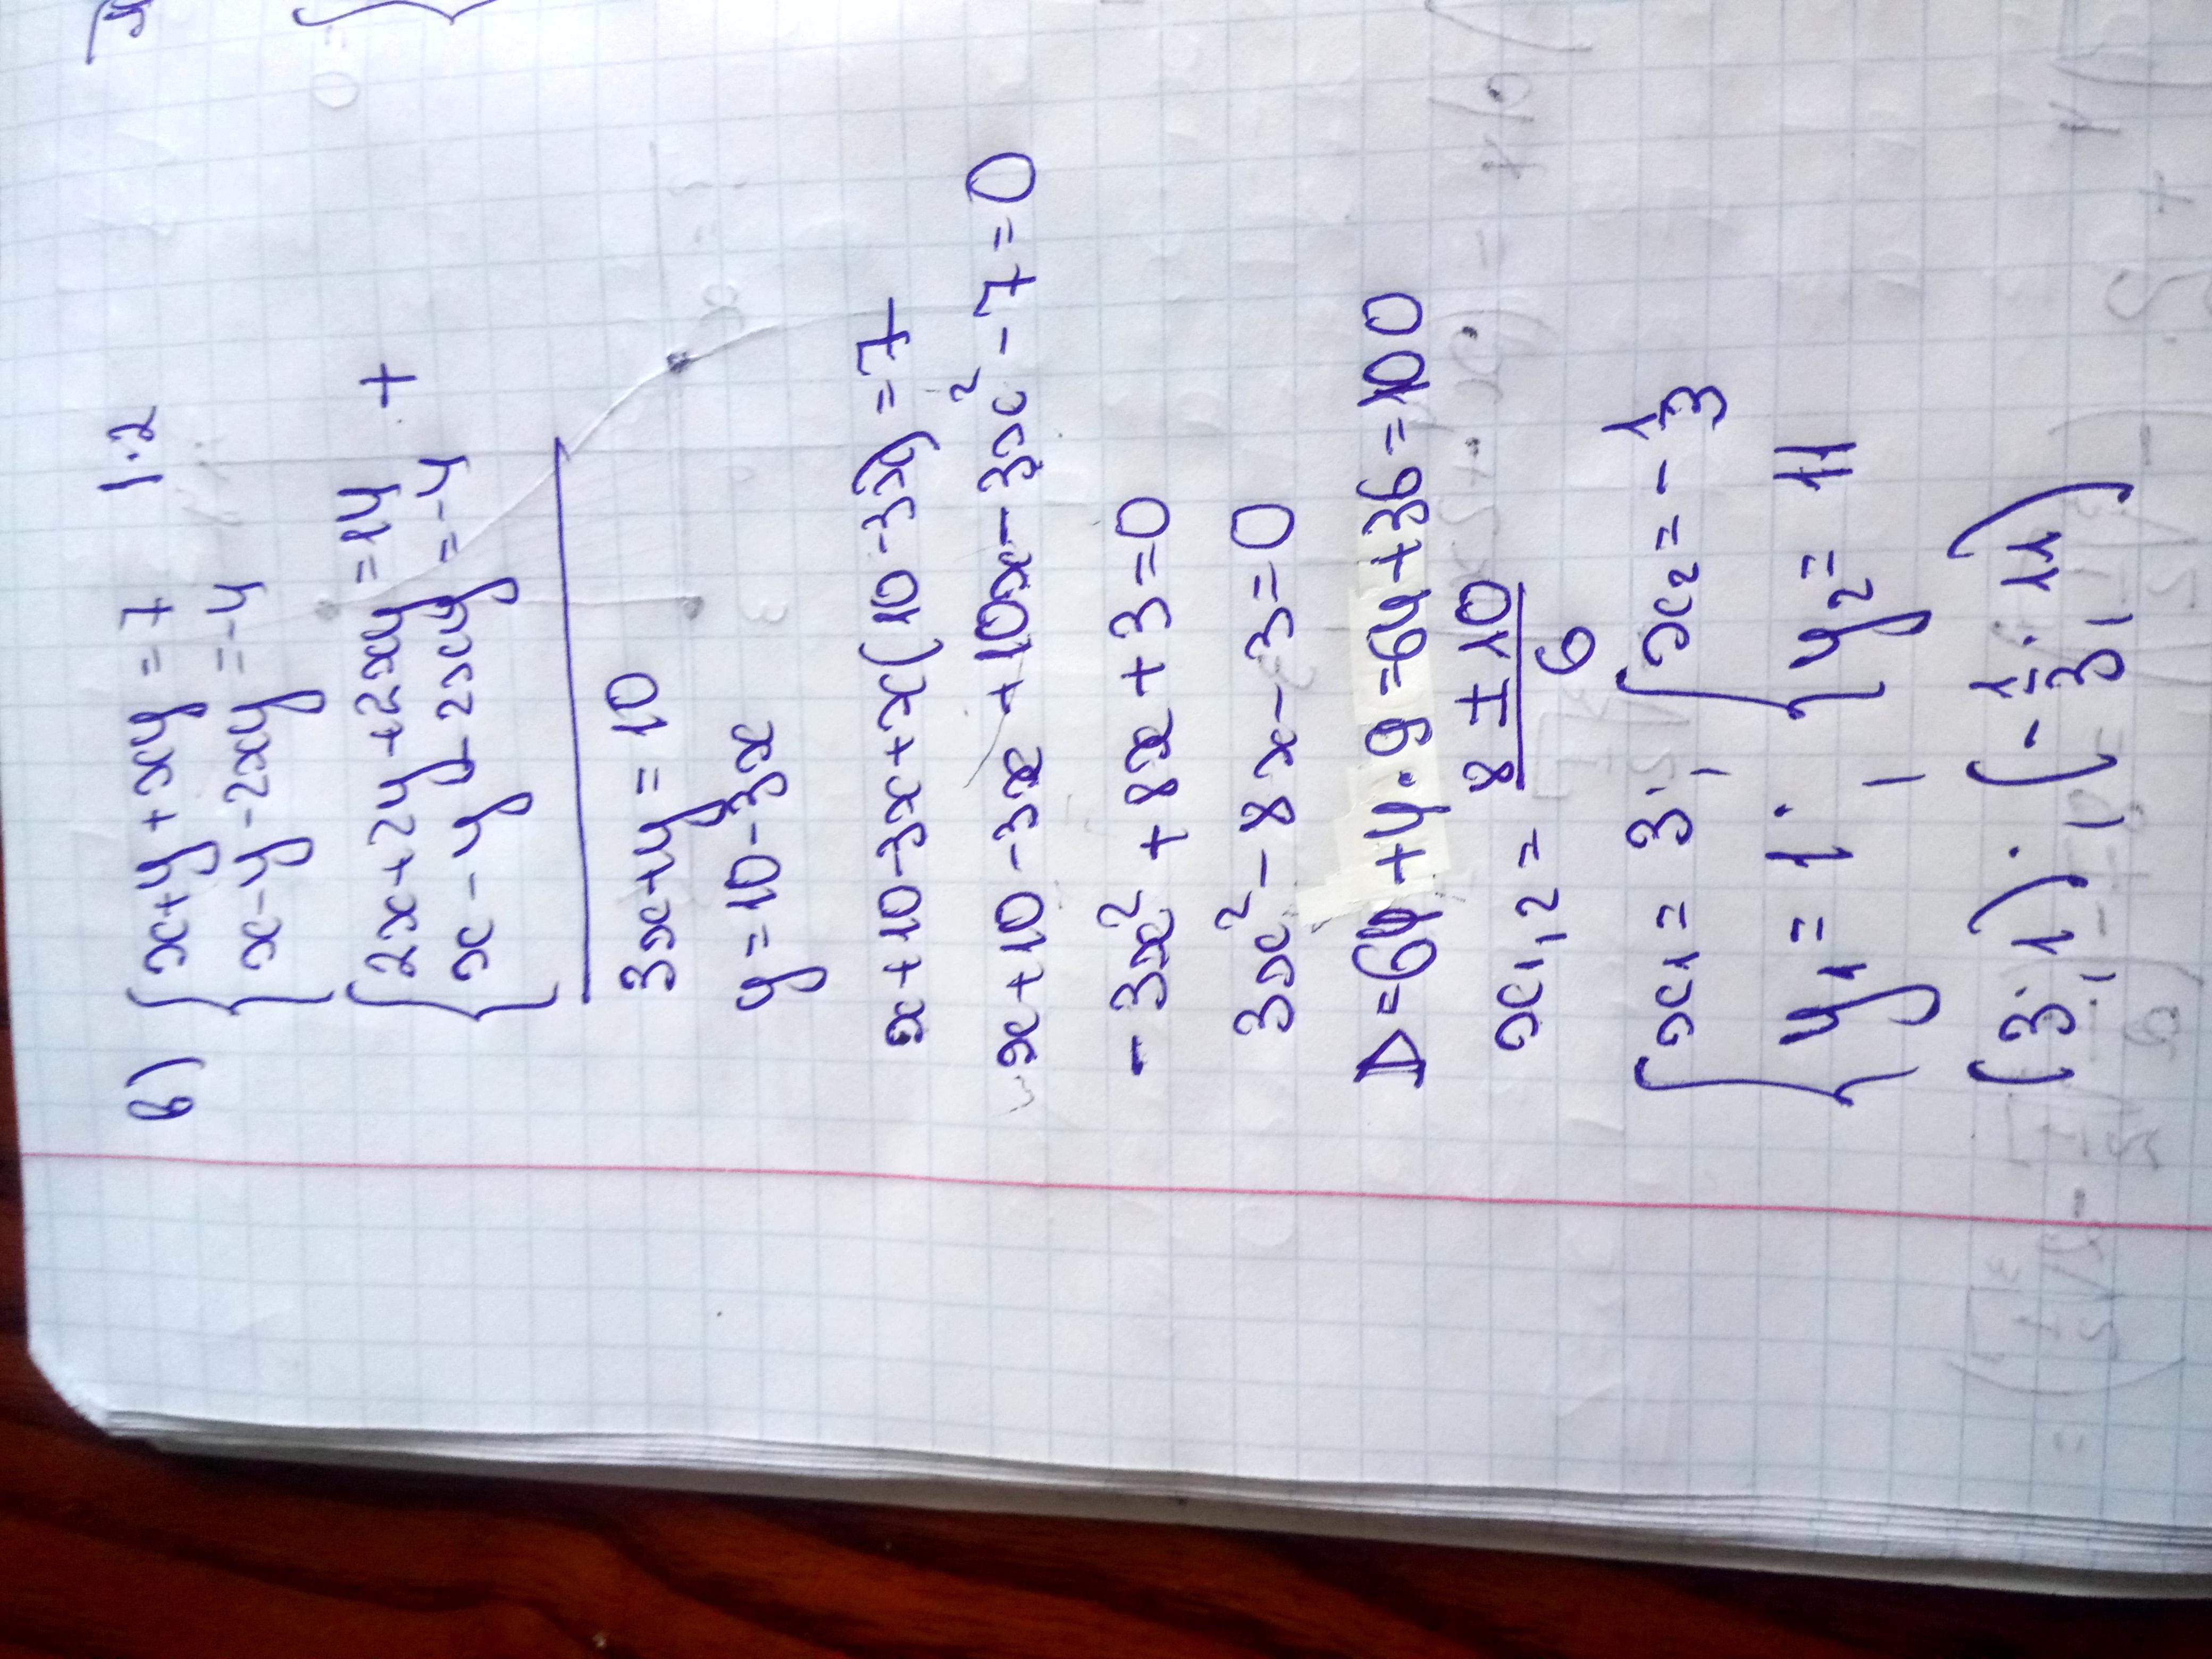 в) { x+y+xy=7 |·2
x-y-2xy=-4
{ 2x+2y+2xy=14 +
x-y-2xy=-4
3x+y=10
y=10-3x
x+10-3x+x(10-3x)=7
x+10-3x+10x-3x²-7=0
-3x²+8x+3=0
3x²-8x-3=0
D=64+4·9=64+36=100
x₁,₂= (8±10)/6
{ x₁=3; { x₂=-1/3
y₁=1; y₂=11
(3;1); (-1/3; 11)